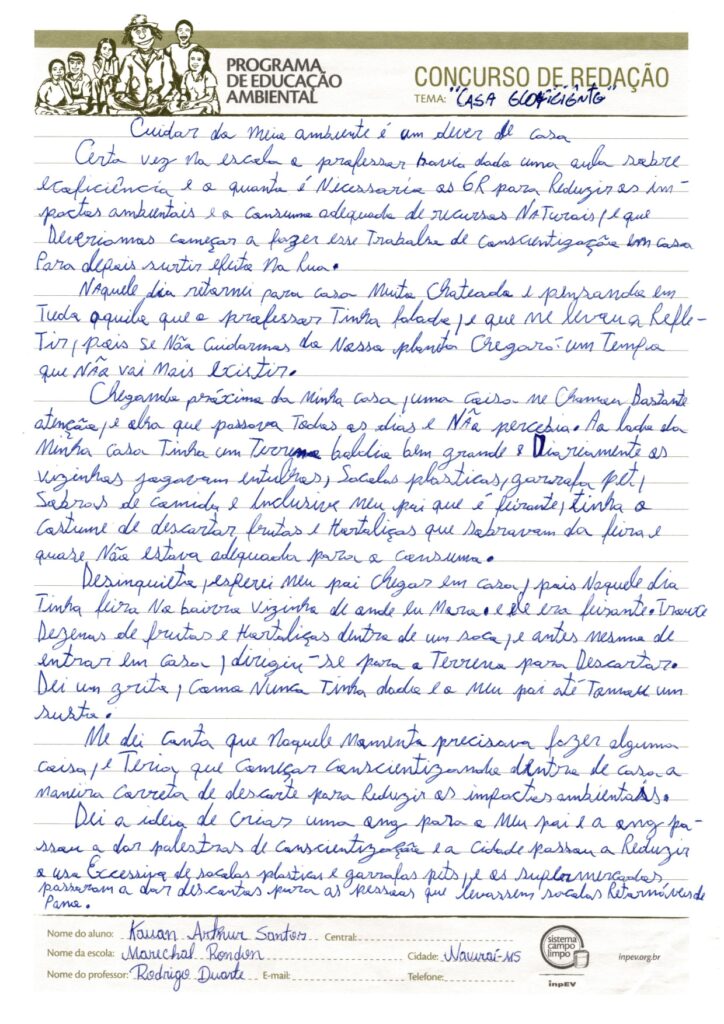 PROGRAMA
DE EDUCAÇÃO
AMBIENTAL
CONCURSO DE REDAÇÃO
TEMA: "CASA ECOFICIENTE"
Cuidar do meio ambiente é um dever de casa
Certa vez na escola o professor havia dado uma aula sobre
ecoficiência e o quanto é Necessario os 6R para Reduzir os im-
pactos ambientais e o consumo adequado de recursos NATurais, e que
Deveriamos começar a fazer esse Trabalho de Conscientização em casa
Para depois surtir efeito Na Rua.
NAquele dia retornei para casa Muito Chateado e pensando em
Tudo aquilo que o professor Tinha falado, e que me levou a Refle-
Tir, pois se Não Cuidarmos do Nosso planeta Chegará um Tempo
que NÃo vai Mais existir.
Chegando próximo da Minha casa, uma coisa me Chamou Bastante
atenção, e olha que passava Todos os dias e NÃo percebia. Ao lado da
Minha casa Tinha um Terreno baldio bem grande e Diariamente os
vizinhos jogavam entulhos, Sacolas plasticas, garrafa pet,
Sobras de comida e Inclusive Meu pai que é feirante, tinha o
costume de descartar frutas e Hortaliças que sobravam da feira e
quase Não estava adequado para o consumo.
Desinquieto, esperei Meu pai Chegar em casa, pois Naquele dia
Tinha feira No bairro Vizinho de onde eu Moro. e ele era feirante. Trouxe
Dezenas de frutas e Hortaliças dentro de um saco, e antes mesmo de
entrar em casa, dirigiu-se para o Terreno para Descartar.
Dei um grito, Como Nunca Tinha dado e o Meu pai até Tomou um
susto.
Me dei Conta que Naquele Momento precisava fazer alguma
coisa, e Teria que Começar Conscientizando dentro de casa a
Maneira Correta de descarte para Reduzir os impactos ambientais.
Dei a ideia de Criar uma ong para o Meu pai e a ong pa-
ssou a dar palestras de Conscientização e a Cidade passou a Reduzir
o uso Excessivo de sacolas plasticas e garrafas pets, e os supermercados
passaram a dar descontos para as pessoas que levassem sacolas Retornáveis de
Pano.
Nome do aluno: Kauan Arthur Santos Central:
Nome da escola: Marechal Rondon Cidade: Naviraí-MS
Nome do professor: Rodrigo Duarte E-mail: Telefone:
sistema
campo
limpo
inpEV
inpev.org.br